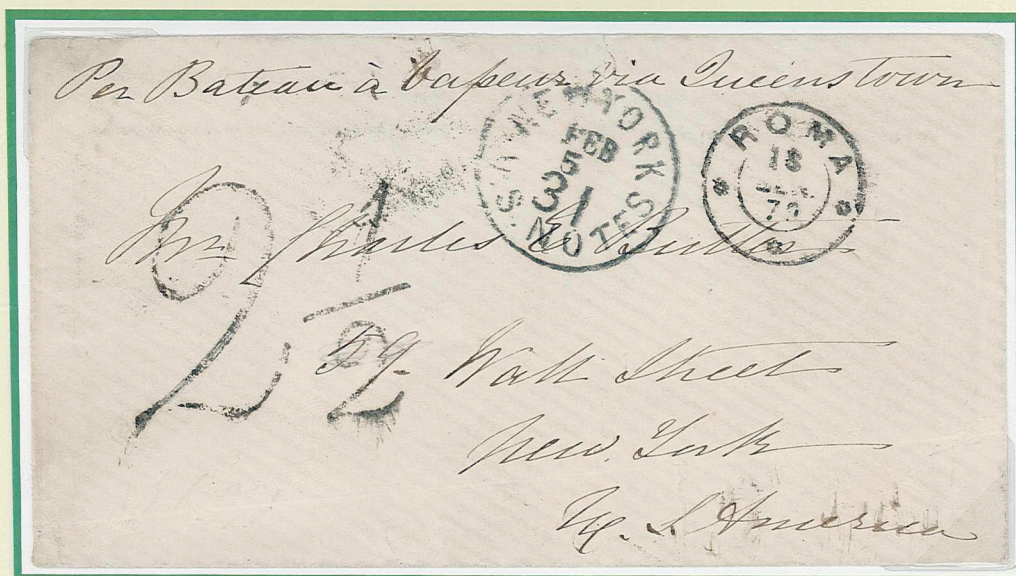 Per Bateau à Vapeur via Queenstown
S. A. NEW YORK
FEB
5
31
NOTES
ROMA
18
2 1/2
Mr Charles E. Butler
59 Wall Street
New York
U. S. America